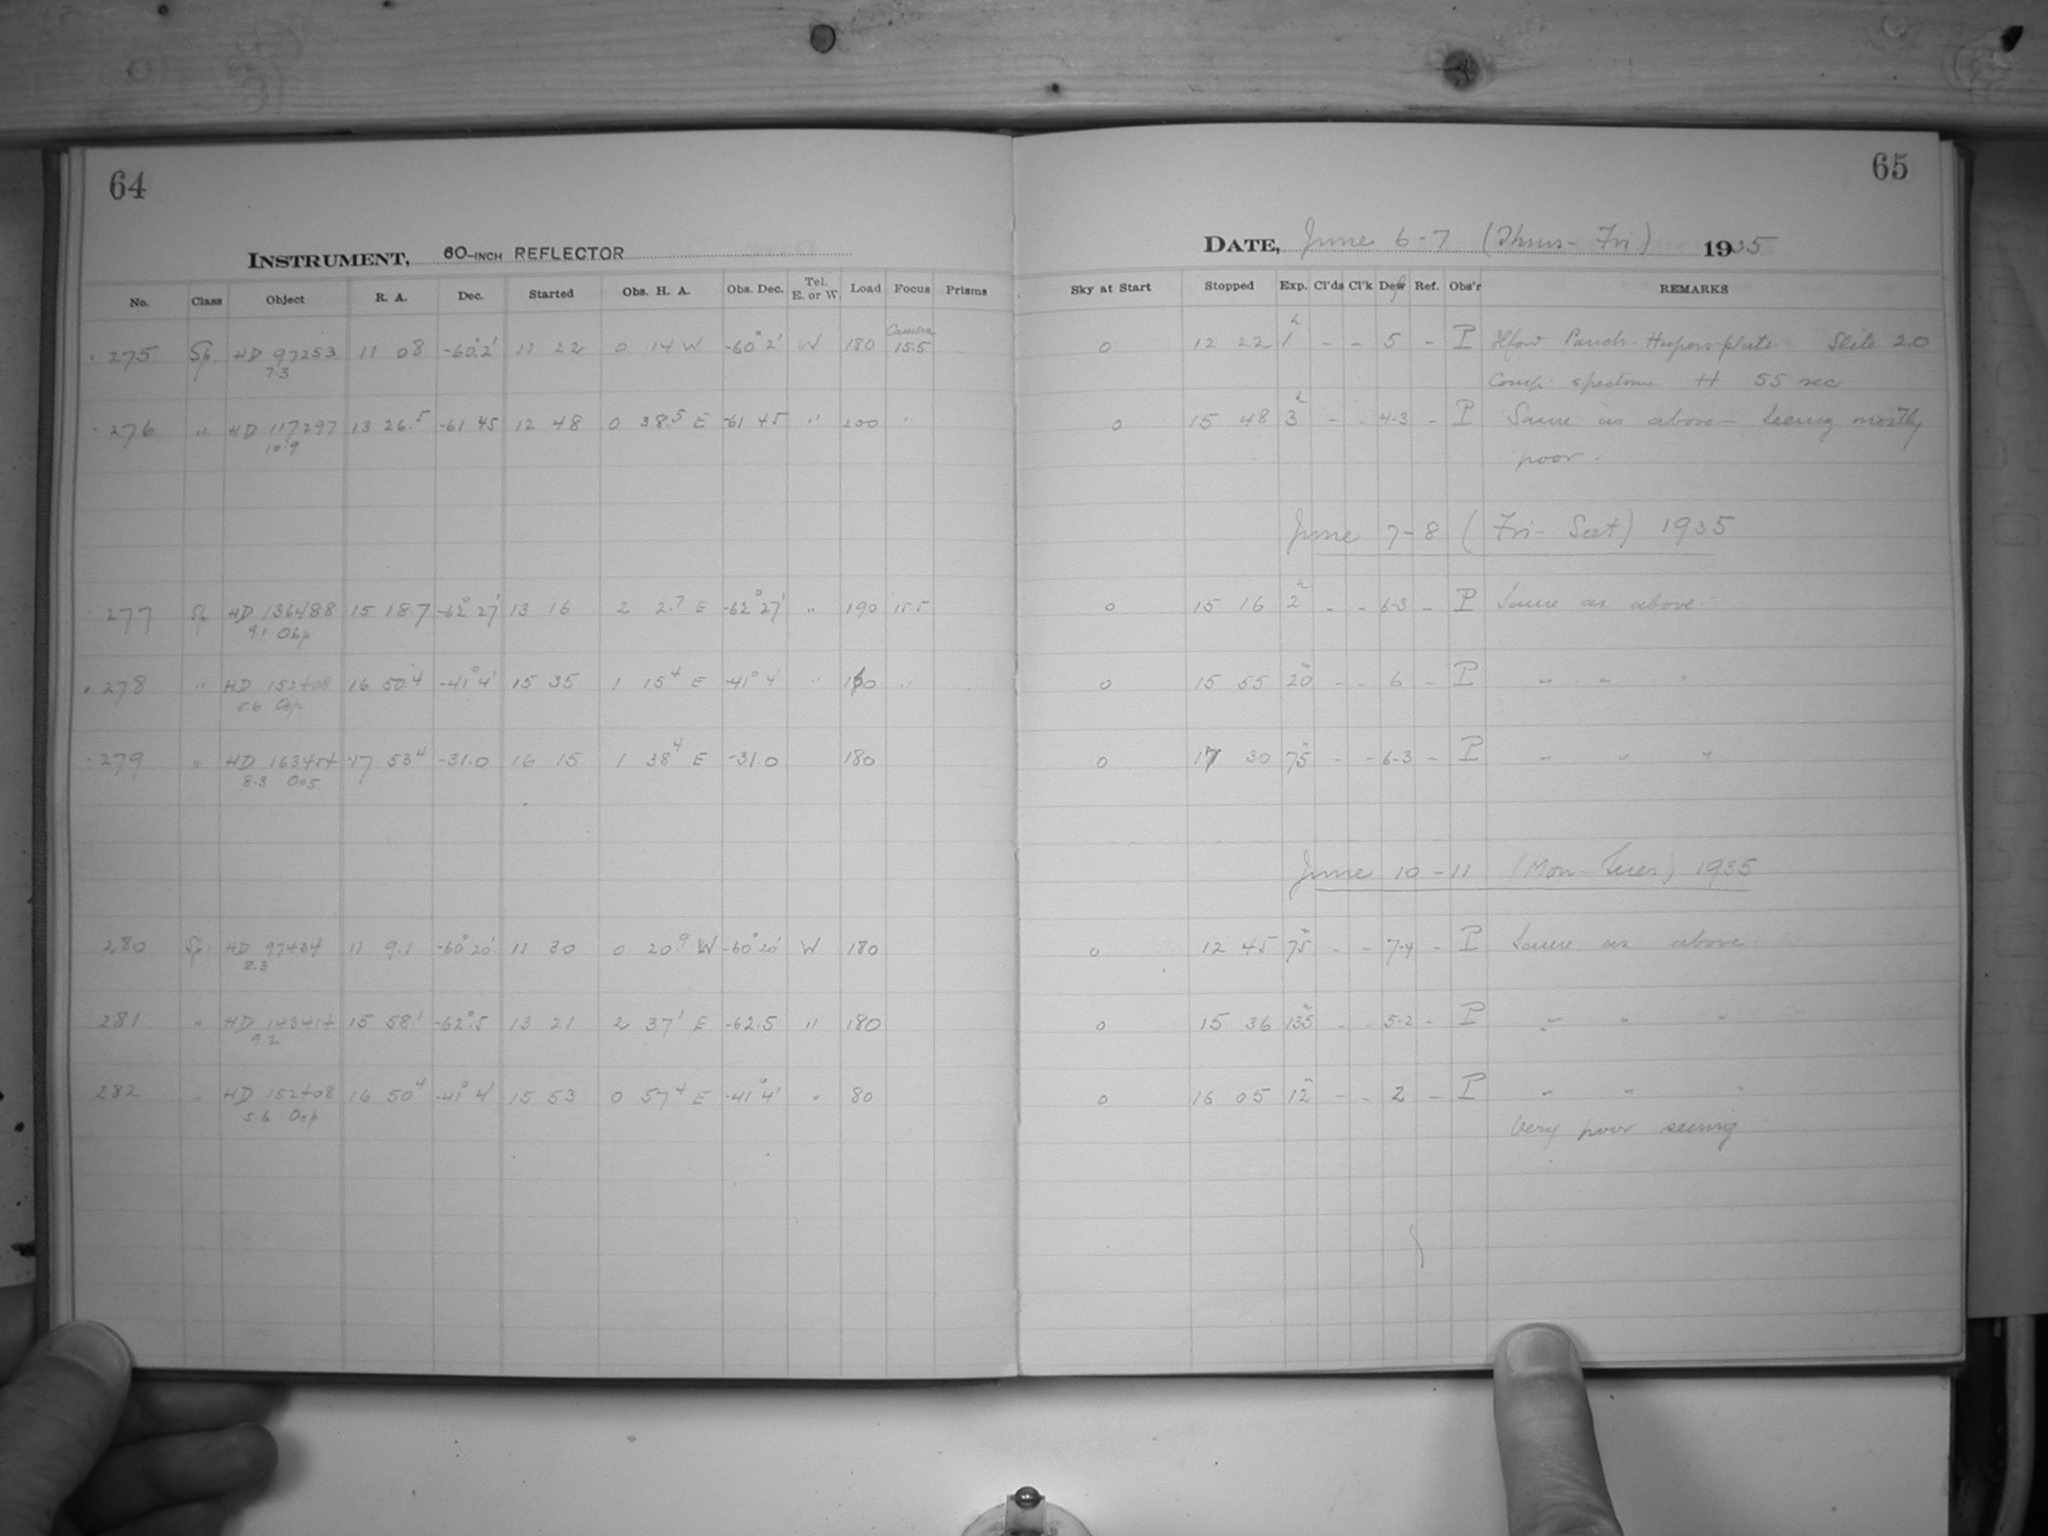 64
65
INSTRUMENT, 60-INCH REFLECTOR
DATE, June 6-7 (Thurs-Fri) 1935
No. Class Object R. A. Dec. Started Obs. H. A. Obs. Dec. Tel. E. or W. Load Focus Prisms Sky at Start Stopped Exp. Cl'ds Cl'k Dew Ref. Obs'r REMARKS
275 Sp. HD 97253 11 08 -60°2' 11 22 0 14 W -60°2' W 180 Camera 15.5 0 12 22 1h - - 5 - P Panchr. plate Slit 2.0
7.3 Comp. spectrum H 55 sec
276 " HD 117297 13 26.5 -61 45 12 48 0 38.5 E -61 45 " 200 " 0 15 48 3h - - 4-3 - P Same as above - Seeing mostly
10.9 poor.
June 7-8 (Fri-Sat) 1935
277 Sp HD 136488 15 18.7 -62°27' 13 16 2 2.7 E -62°27' " 190 15.5 0 15 16 2h - - 6-3 - P Same as above
9.1 Obp
278 " HD 152408 16 50.4 -41°4' 15 35 1 15.4 E -41°4 " 160 " 0 15 55 20m - - 6 - P " " "
5.6 Oep
279 " HD 163454 17 53.4 -31.0 16 15 1 38.4 E -31.0 180 0 17 30 75m - - 6-3 - P " " "
8.3 Oe5
June 10-11 (Mon-Tues) 1935
280 Sp. HD 97434 11 9.1 -60°20' 11 30 0 20.9 W -60°20' W 180 0 12 45 75m - - 7-4 - P Same as above
8.3
281 " HD 143414 15 58.1 -62°.5 13 21 2 37.1 E -62.5 " 180 0 15 36 135m - - 5-2 - P " " "
9.2
282 " HD 152408 16 50.4 -41°4' 15 53 0 57.4 E -41°4' " 80 0 16 05 12m - - 2 - P " " "
5.6 Oep Very poor seeing